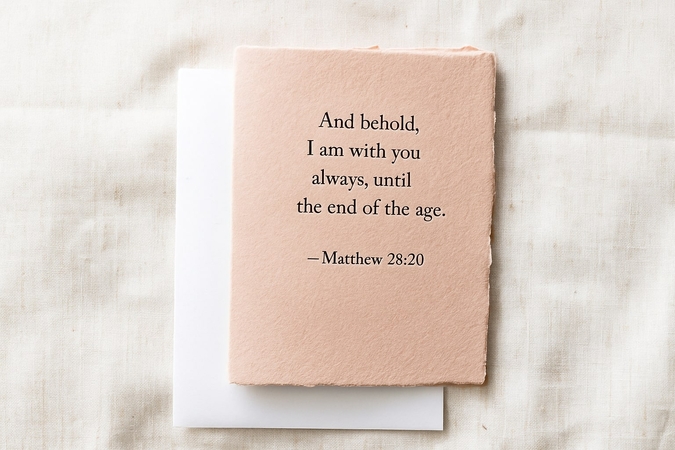 And behold,
I am with you
always, until
the end of the age.
—Matthew 28:20